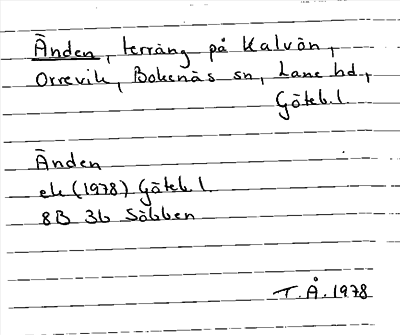 Änden, terräng på Kalvön,
Orrevik, Bokenäs sn, Lane hd,
Göteb.l.
Änden
ek (1978) Göteb.l.
8B 3b Säbben
T.Å. 1978